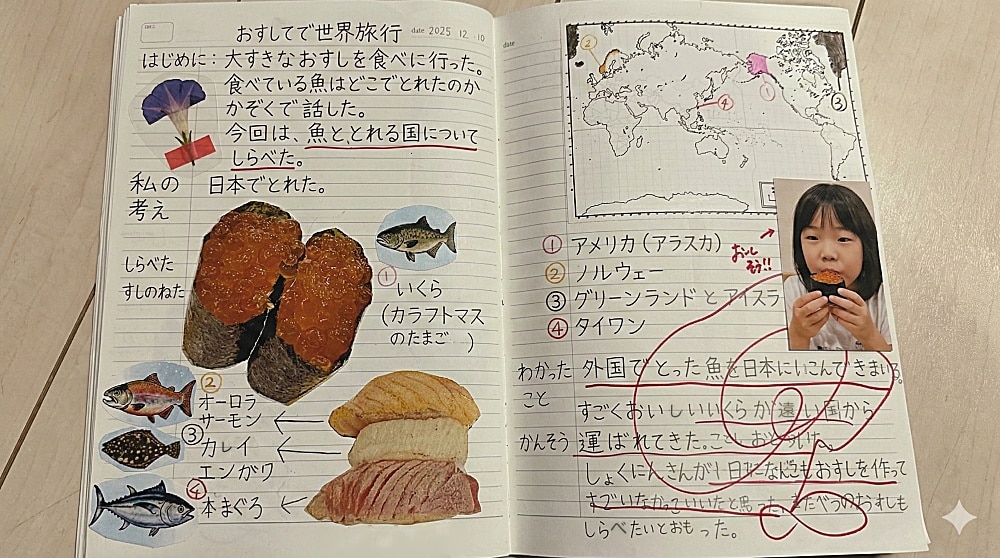 おすしてで世界旅行 date 2025 12.10
はじめに：大すきなおすしを食べに行った。
食べている魚はどこでとれたのか
かぞくで話した。
今回は、魚ととれる国について
しらべた。
私の 日本でとれた。
考え
しらべた
すしのねた
①
いくら
(カラフトマス
のたまご)
②
オーロラ
サーモン
③
カレイ
エンガワ
④
本まぐろ
date
②
①
③
④
① アメリカ(アラスカ)
② ノルウェー
③ グリーンランドとアイスラ
④ タイワン
おいしそう!!
わかった 外国でとった魚を日本に
こと
すごくおいしいいくらが遠い国から
かんそう 運ばれてきた。
しょくにんさんが
おすしを作って
すごいな
と思った。
しらべたいとおもった。